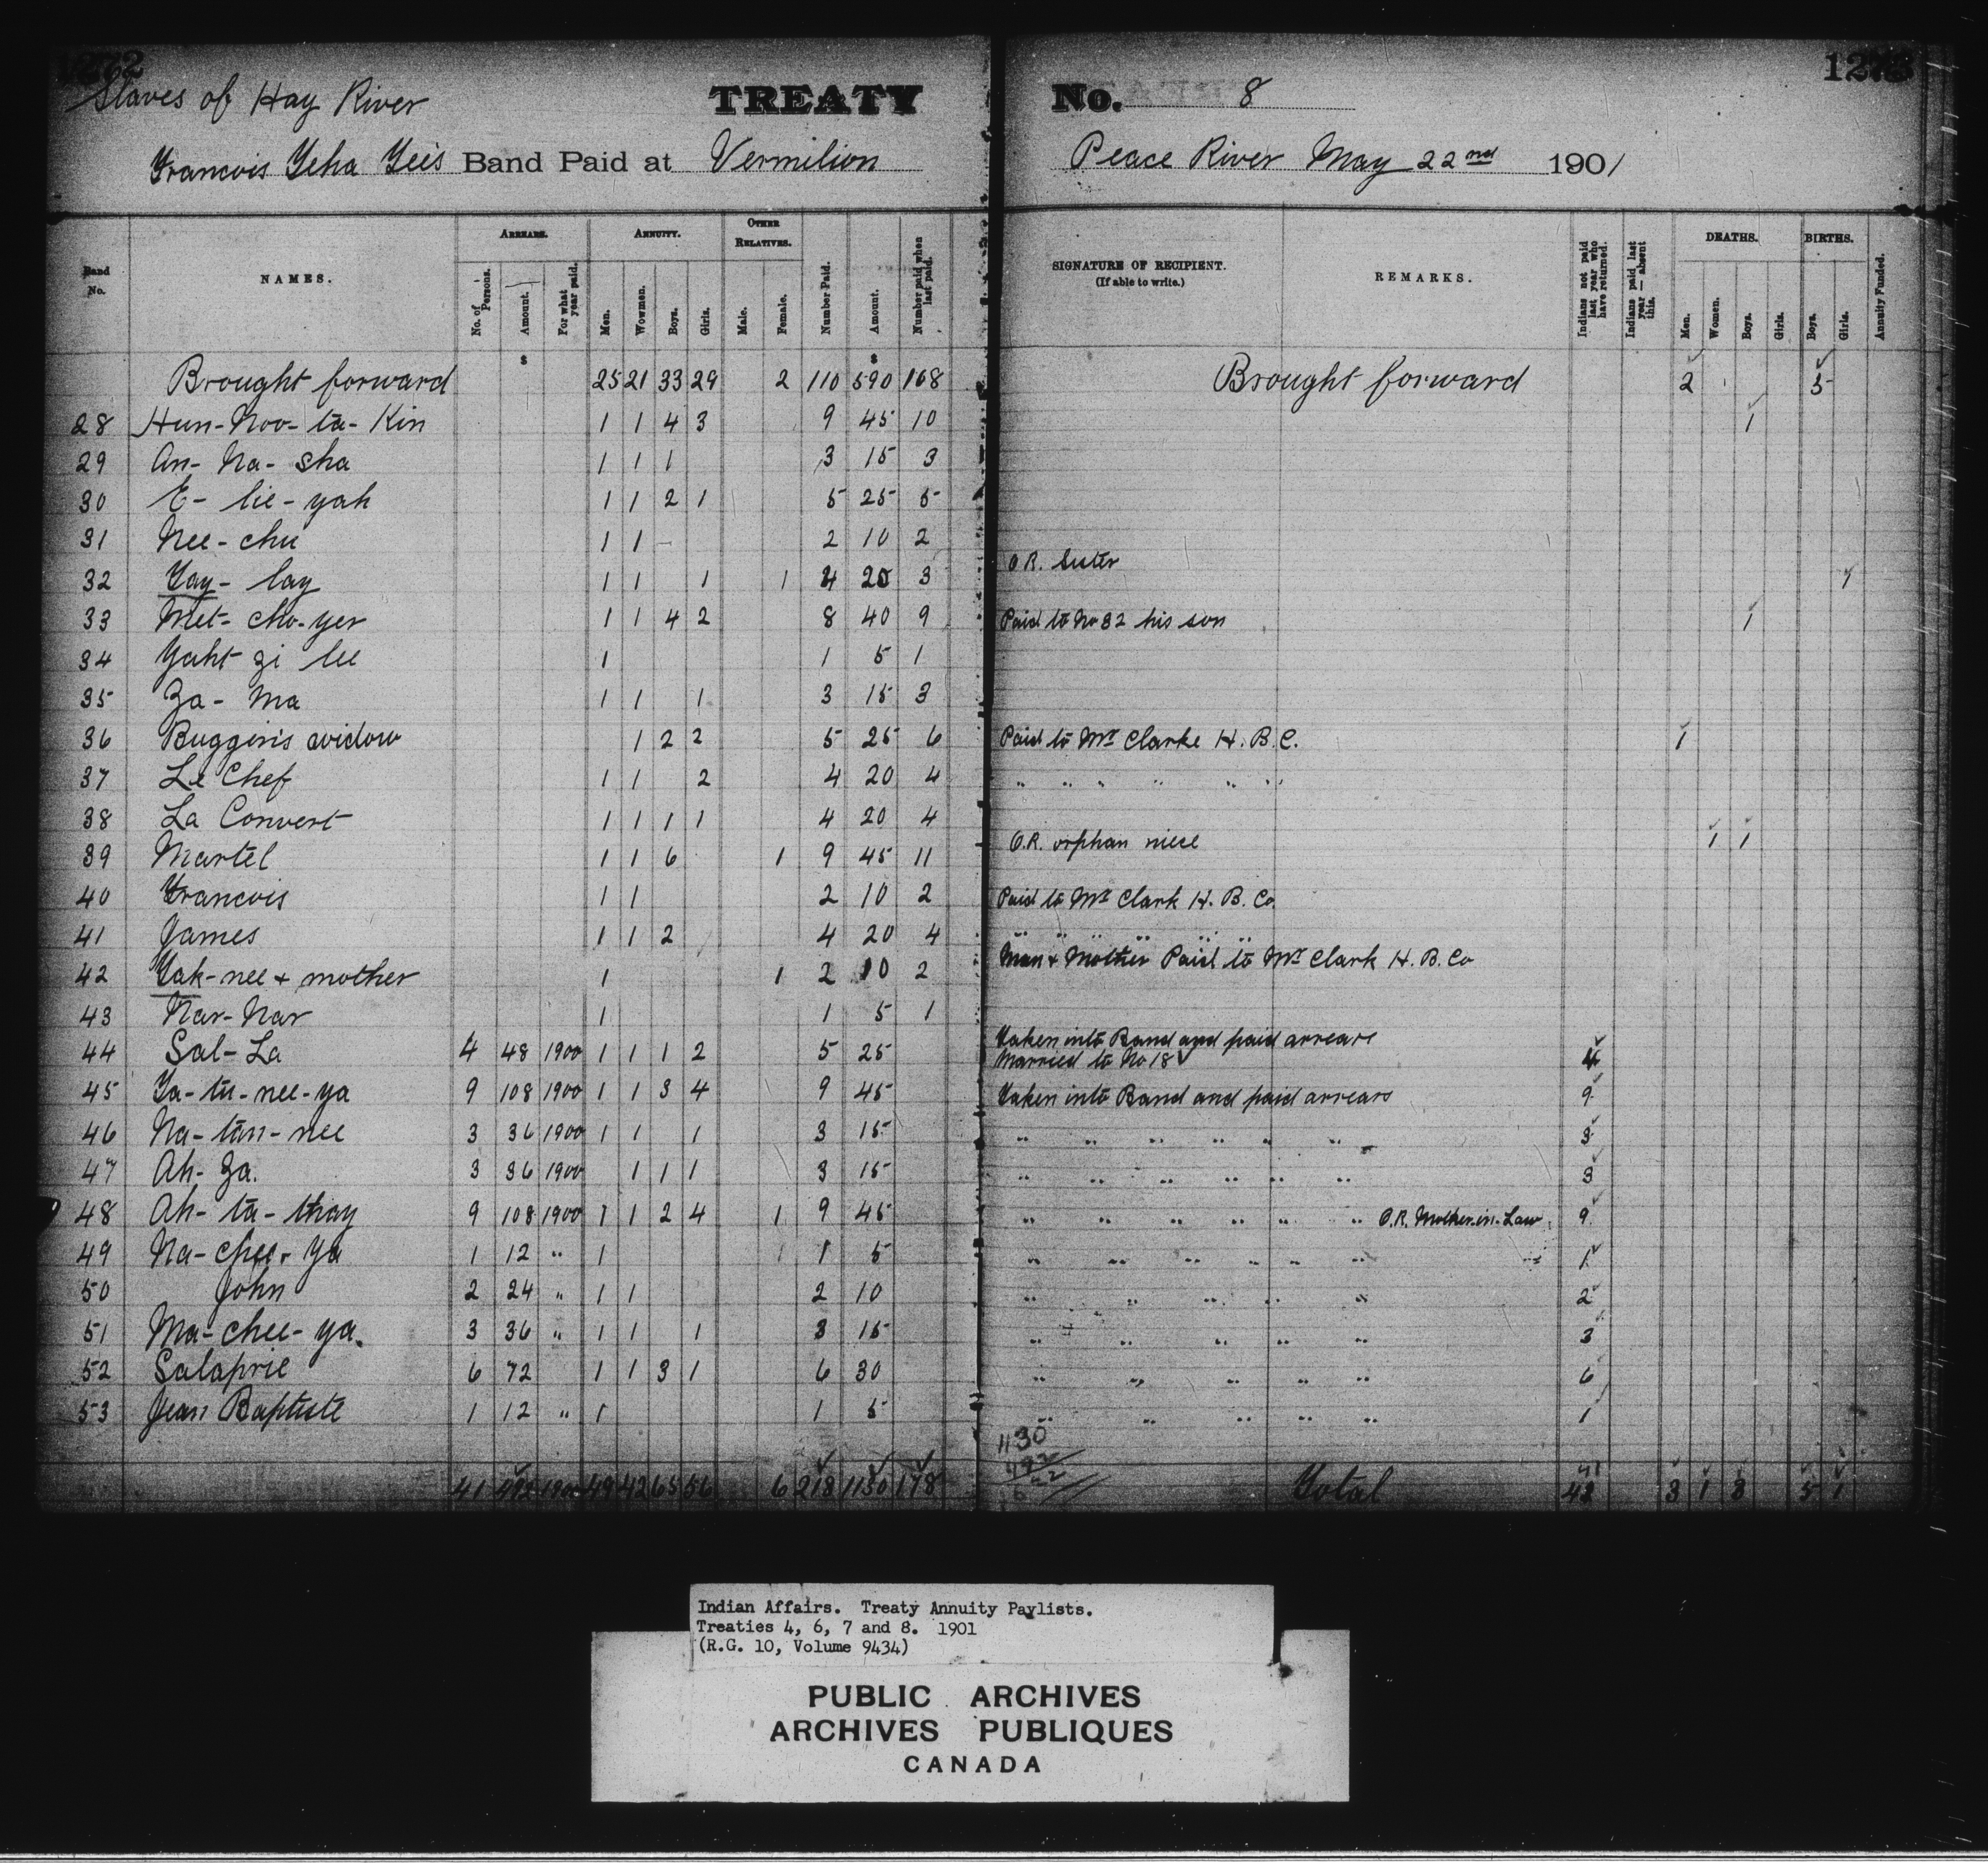 1272
1273
Slaves of Hay River TREATY No. 8
Francois Teha Tee's Band Paid at Vermilion Peace River May 22nd 1901
Band No.
NAMES.
ARREARS.
No. of Persons.
Amount.
For what year paid.
ANNUITY.
Men.
Wowmen.
Boys.
Girls.
OTHER RELATIVES.
Male.
Female.
Number Paid.
Amount.
Number paid when last paid.
SIGNATURE OF RECIPIENT.
(If able to write.)
REMARKS.
Indians not paid last year who have returned.
Indians paid last year—absent this.
DEATHS.
Men.
Women.
Boys.
Girls.
BIRTHS.
Boys.
Girls.
Annuity Funded.
$ $
Brought forward 25 21 33 29 2 110 590 168 Brought forward 2 5
28 Hun-Noo-ta-Kin 1 1 4 3 9 45 10 1
29 An-Na-sha 1 1 1 3 15 3
30 E-lie-yah 1 1 2 1 5 25 5
31 Nee-chu 1 1 2 10 2
32 Tay-lay 1 1 1 1 4 20 3 O.R. Sister 1
33 Met-cho-yer 1 1 4 2 8 40 9 Paid to No 32 his son 1
34 Yaht zi lee 1 1 5 1
35 Za-Ma 1 1 1 3 15 3
36 Buggin's widow 1 2 2 5 25 6 Paid to Mr Clarke H.B.C. 1
37 Le Chef 1 1 2 4 20 4 " " " " " "
38 La Convert 1 1 1 1 4 20 4
39 Martel 1 1 6 1 9 45 11 O.R. orphan niece 1 1
40 Francois 1 1 2 10 2 Paid to Mr Clark H.B.Co
41 James 1 1 2 4 20 4 " " " " " "
42 Tak-nee + mother 1 1 2 10 2 Man + Mother Paid to Mr Clark H.B.Co
43 Nar-Nar 1 1 5 1
44 Sal-La 4 48 1900 1 1 1 2 5 25 Taken into Band and paid arrears 4
Married to No 18
45 Ta-tu-nee-ya 9 108 1900 1 1 3 4 9 45 Taken into Band and paid arrears 9
46 Na-tan-nee 3 36 1900 1 1 1 3 15 " " " " " " 3
47 Ah-Za. 3 36 1900 1 1 1 3 15 " " " " " " 3
48 Ah-ta-thay 9 108 1900 1 1 2 4 1 9 45 " " " " " " O.R. Mother-in-Law 9
49 Na-chee-ya 1 12 " 1 1 5 " " " " " " 1
50 John 2 24 " 1 1 2 10 " " " " " 2
51 Ma-chee-ya. 3 36 " 1 1 1 3 15 " " " " " 3
52 Salaprie 6 72 1 1 3 1 6 30 " " " " " 6
53 Jean Baptiste 1 12 " 1 1 5 " " " " " 1
1130
492
41 492 1900 49 42 65 56 6 218 1130 178 Total 41 3 1 3 5 1
Indian Affairs. Treaty Annuity Paylists.
Treaties 4, 6, 7 and 8. 1901
(R.G. 10, Volume 9434)
PUBLIC ARCHIVES
ARCHIVES PUBLIQUES
CANADA